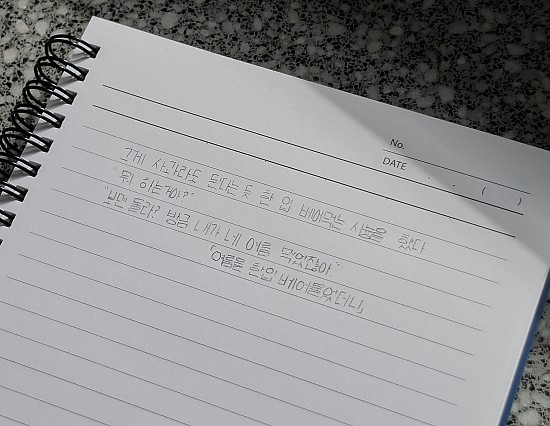 No.
DATE . . ( )
그게 사과라도 된다는 듯 한 입 베어먹는 시늉을 했다
"뭐 하는거야?"
"보면 몰라? 방금 내가 네 여름 먹었잖아."
「여름을 한입 베어물었더니」